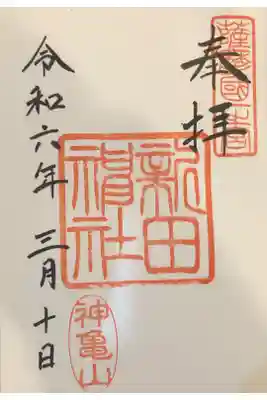 薩摩國一宮
奉拝
新田神社
令和六年 三月十日
神亀山